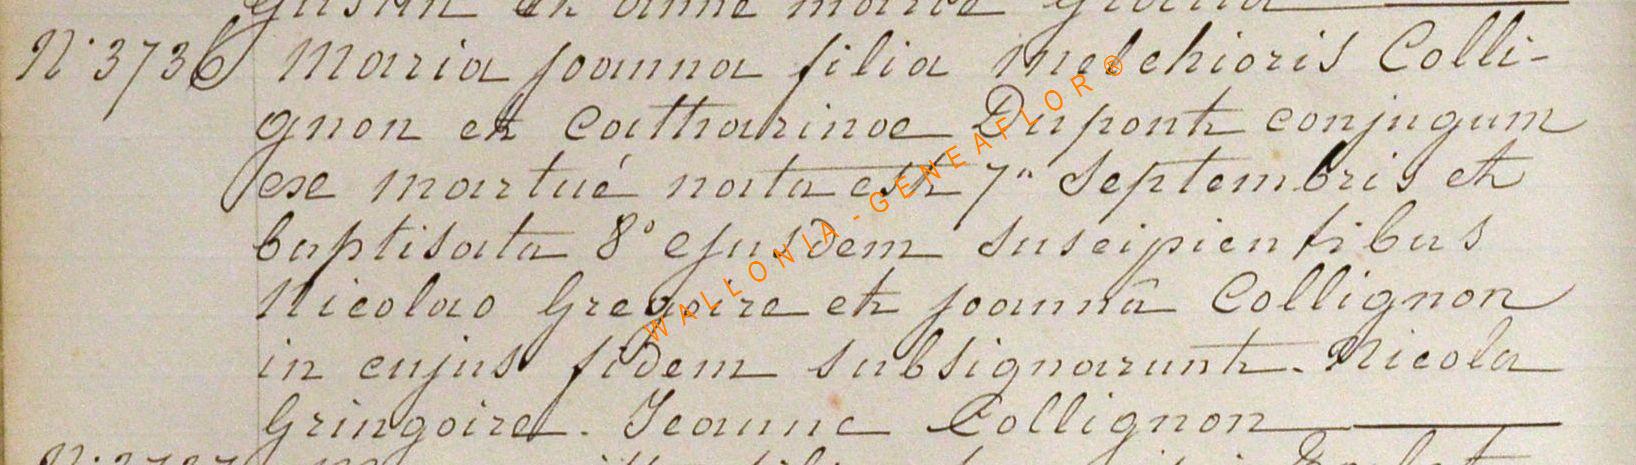 N° 3736 Maria Joanna filia Melchioris Colli-
gnon et Catharinae Dupont conjugum
ex martué nata est 7ª Septembris et
baptisata 8° ejusdem suscipientibus
Nicolao Gregoire et Joannâ Collignon
in cujus fidem subsignarunt. Nicola
Gringoire. Jeanne Collignon
WALLONIA-GENEAFLOR®